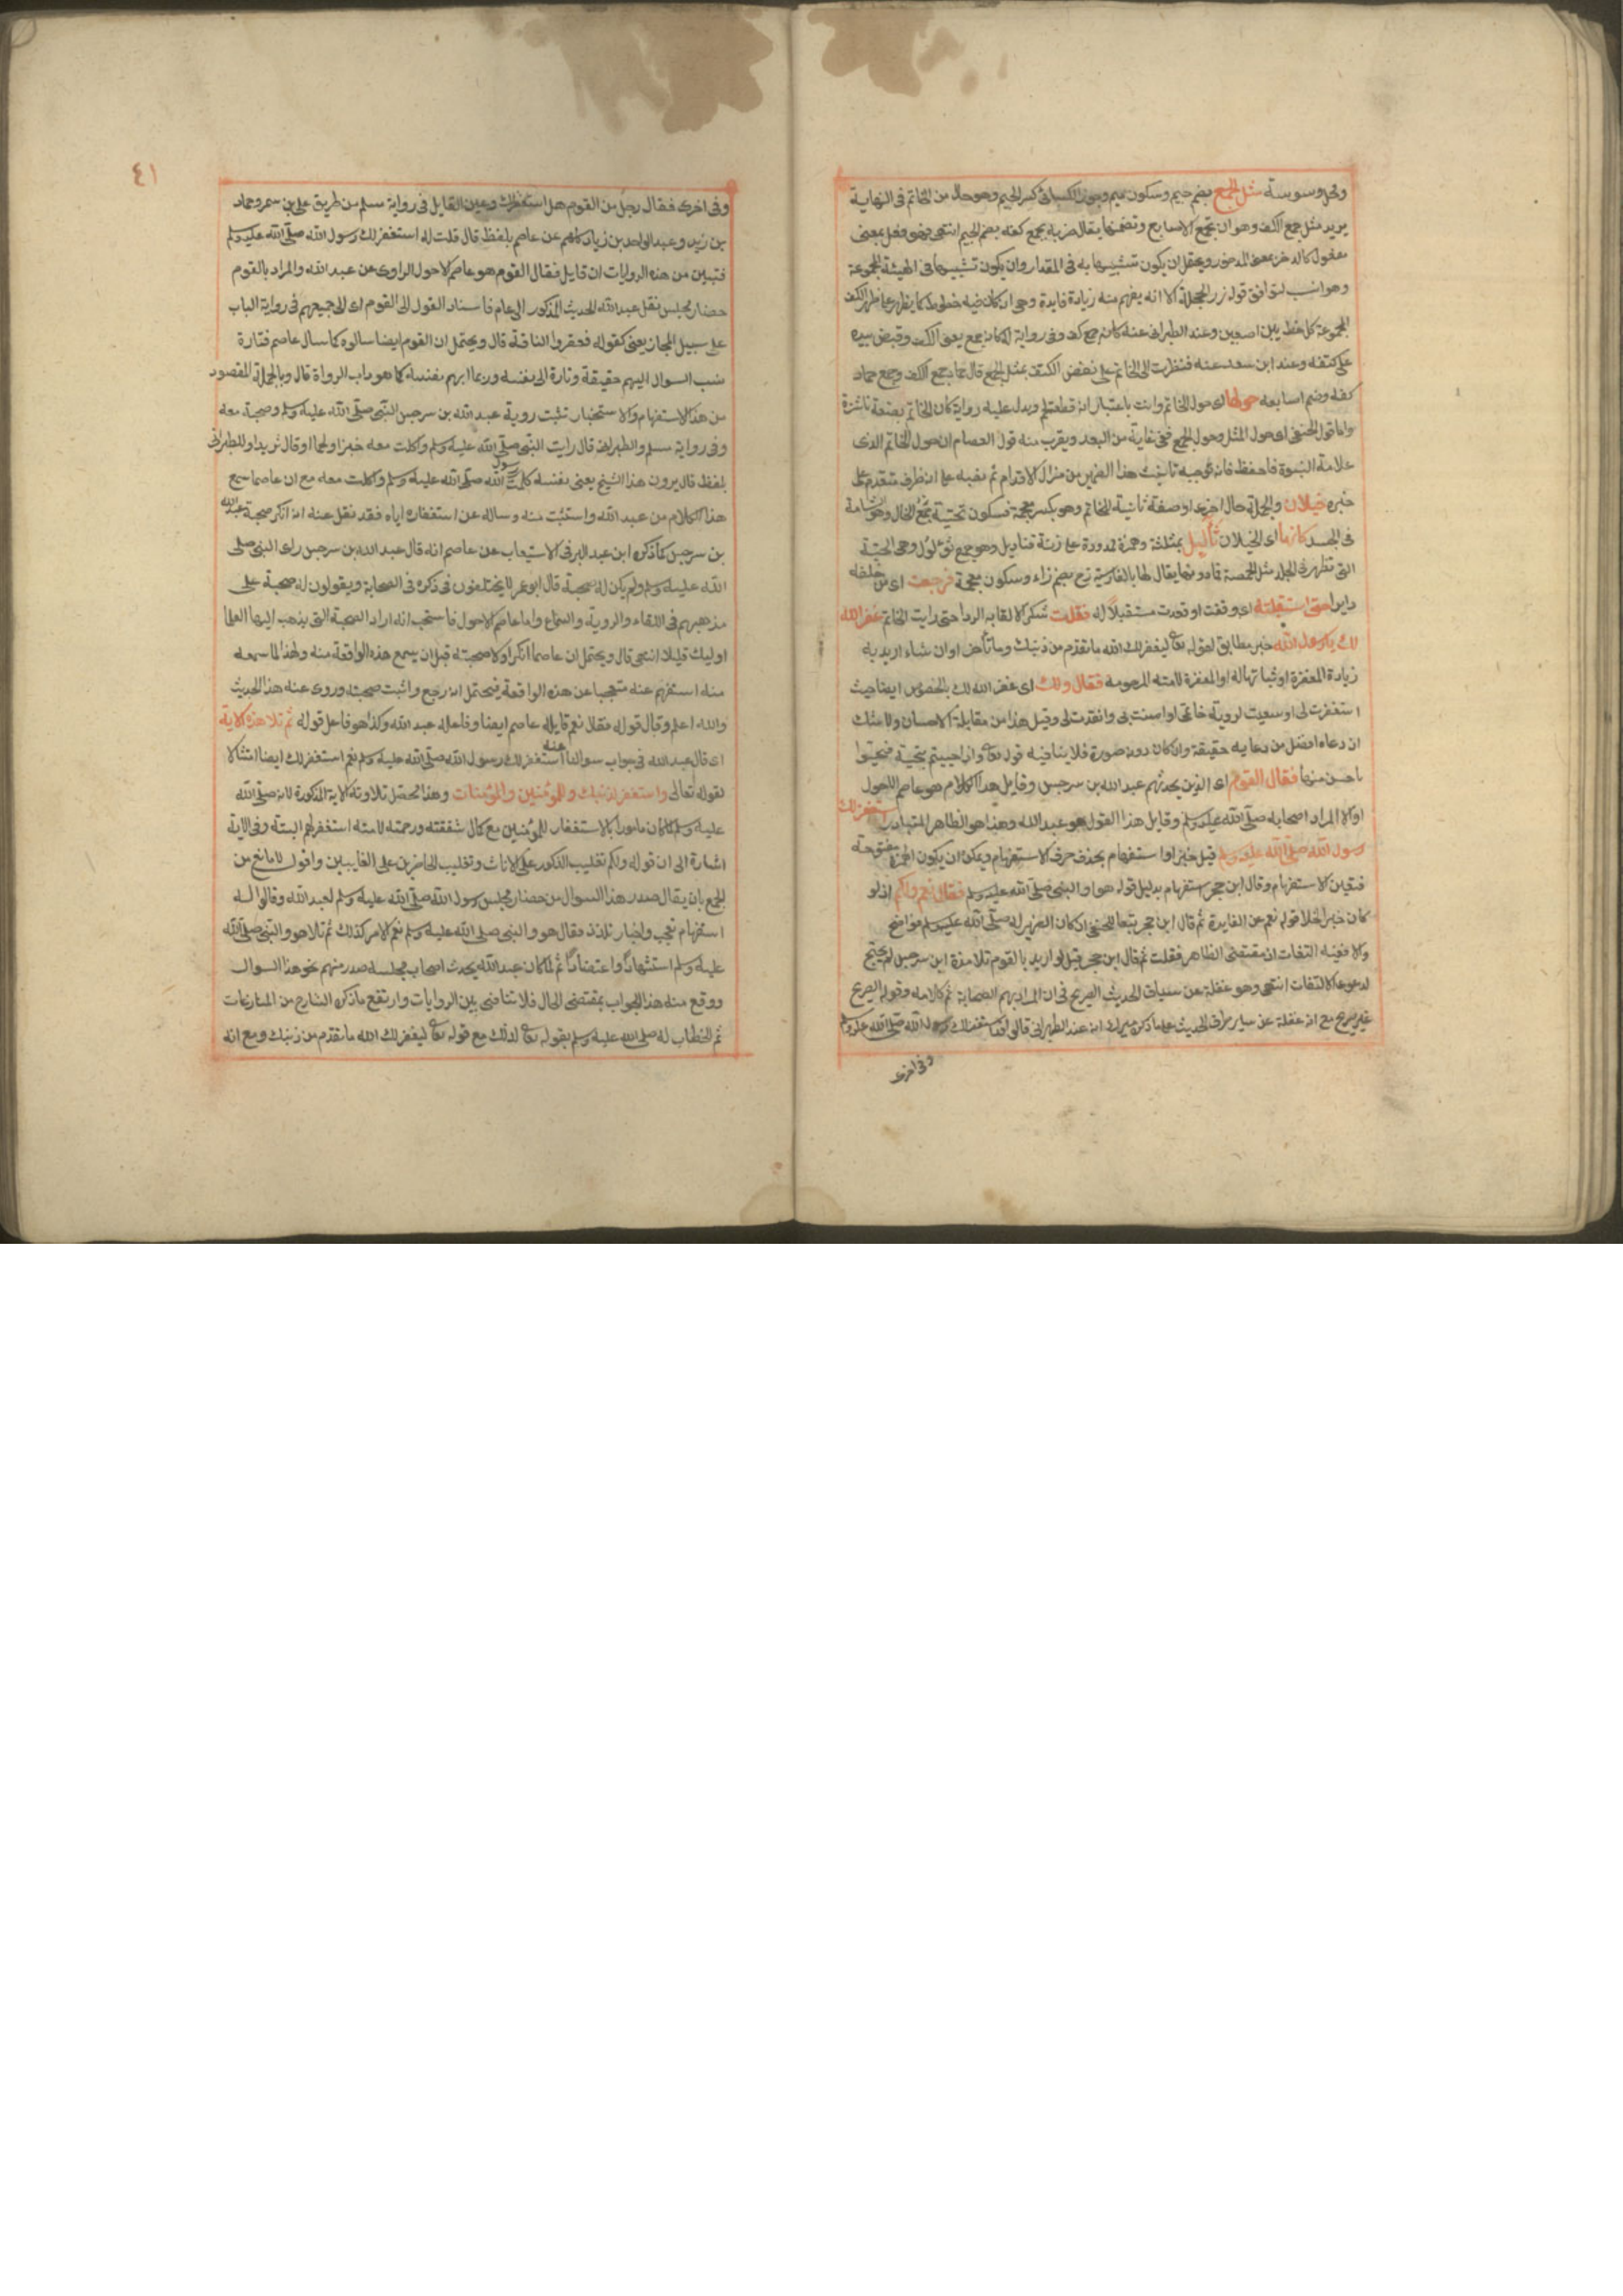 وفي وسوسة مثل الجمع بضم جيم وسكون ميم وجوز الكسائي كسر الجيم وهو محل من الخاتم في النهاية
يريد مثل جمع الكف وهو ان تجمع الاصابع وتضمها يقال ضربه بجمع كفه بضم الجيم انتهى فهو فعل بمعنى
مفعول كالذخر بمعنى المدخور ويحتمل ان يكون تشبيها به في المقدار وان يكون تشبيها في الهيئة المجموعة
وهو انسب لتوافق قوله زر الحجلة الا انه يفهم منه زيادة فايدة وهي انه كان فيه خطوط كما يظهر على ظهر الكف
المجموعة كل خط بين اصبعين وعند الطبراني عنه كانه جمع كف وفي رواية له كانه جمع يعني الكف وقبض بيده
على كتفه وعند ابن سعد عنه فنظرت الى الخاتم على نغض الكتف مثل الجمع قال حماد جمع الكف وجمع حماد
كفه وضم اصابعه حولها اي حول الخاتم وانث باعتبار انه قطعة لحم ويدل عليه رواية كان الخاتم بضعة ناشزة
واما قول الحنفي اي حول المثل وحول الجمع ففي غاية من البعد ويقرب منه قول العصام ان حول الخاتم الذي
علامة النبوة فاحفظ فانه توجيه تانيث هذا الضمير من مزال الاقدام ثم نصبه على انه ظرف متقدم على
خبره خيلان والجملة حال اخرى او صفة ثانية للخاتم وهو بكسر معجمة فسكون تحتية جمع الخال وهو الشامة
في الجسد كانها اي الخيلان ثآليل بمثلثة وهمزة ممدودة على زنة قناديل وهو جمع ثؤلول وهي الحبة
التي تظهر في الجلد مثل الحمصة فما دونها يقال لها بالفارسية زخ بضم زاء وسكون معجمة فرجعت اي من خلفه
دايرا حتى استقبلته اي وقفت او قعدت مستقبلا له فقلت شكرا لالقائه الرداء حتى رايت الخاتم غفر الله
لك يا رسول الله خبر مطابق لقوله تعالى ليغفر لك الله ما تقدم من ذنبك وما تأخر او انشاء اريد به
زيادة المغفرة او ثباتها له او المغفرة لامته المرحومة فقال ولك اي غفر الله لك بالخصوص ايضا حيث
استغفرت لي او سعيت لروية خاتمي او امنت بي وانقدت لي وقيل هذا من مقابلة الاحسان ولا شك
ان دعاءه افضل من دعايه حقيقة وان كان دونه صورة فلا ينافيه قوله تعالى واذا حييتم بتحية فحيوا
باحسن منها فقال القوم اي الذين يحدثهم عبد الله بن سرجس وقايل هذا الكلام هو عاصم الاحول
اولا المراد اصحابه صلى الله عليه وسلم وقايل هذا القول هو عبد الله وهذا هو الظاهر المتبادر استغفر لك
رسول الله صلى الله عليه وسلم قيل خبر او استفهام بحذف حرف الاستفهام ويمكن ان يكون الهمزة مفتوحة
فتعين الاستفهام وقال ابن حجر استفهام بدليل قوله هو او النبي صلى الله عليه وسلم فقال نعم ولكم اذ لو
كان خبرا لخلا قوله نعم عن الفايدة ثم قال ابن حجر تبعا للحنفي ان كان الضمير له صلى الله عليه وسلم فواضح
والا ففيه التفات اذ مقتضى الظاهر فقلت ثم قال ابن حجر قيل لو اريد بالقوم تلامذة ابن سرجس لم يحتج
لدعوى الالتفات انتهى وهو غفلة عن سياق الحديث الصريح في ان المراد بهم الصحابة ثم كلامه وقوله الصريح
غير صريح مع انه غفلة عن سائر طرق الحديث على ما ذكره ميرك انه عند الطبراني قالوا قد استغفر لك رسول الله صلى الله عليه وسلم
وفي اخرى
٤١
وفي اخرى فقال رجل من القوم هل استغفر لك وعين القايل في رواية مسلم من طريق علي بن مسهر وحماد
بن زيد وعبد الواحد بن زياد كلهم عن عاصم بلفظ قال قلت له استغفر لك رسول الله صلى الله عليه وسلم
فتبين من هذه الروايات ان قايل فقال القوم هو عاصم الاحول الراوي عن عبد الله والمراد بالقوم
حضار مجلس نقل عبد الله الحديث المذكور الى عام فاسناد القول الى القوم اي الى جميعهم في رواية الباب
على سبيل المجاز يعني كقوله فعقروا الناقة قال ويحتمل ان القوم ايضا سالوه كما سال عاصم فتارة
نسب السوال اليهم حقيقة وتارة الى نفسه وربما ابهم بنفسه كما هو داب الرواة قال وبالجملة المقصود
من هذا الاستفهام والاستخبار تثبت روية عبد الله بن سرجس النبي صلى الله عليه وسلم وصحبة معه
وفي رواية مسلم والطبراني قال رايت النبي صلى الله عليه وسلم واكلت معه خبزا ولحما او قال ثريدا وللطبراني
بلفظ قال يرون هذا الشيخ يعني نفسه كلمت رسول الله صلى الله عليه وسلم واكلت معه مع ان عاصما سمع
هذا الكلام من عبد الله واستثبت منه وساله عن استغفاره اياه فقد نقل عنه انه انكر صحبة عبد الله
بن سرجس كما ذكره ابن عبد البر في الاستيعاب عن عاصم انه قال عبد الله بن سرجس راى النبي صلى
الله عليه وسلم ولم يكن له صحبة قال ابو عمر لا يختلفون في ذكره في الصحابة ويقولون له صحبة على
مذهبهم في اللقاء والروية والسماع واما عاصم الاحول فاحسب انه اراد الصحبة التي يذهب اليها العلما
اوليك قليل انتهى قال ويحتمل ان عاصما انكر اولا صحبته قبل ان يسمع هذه الواقعة منه ولهذا لما سمعه
منه استفهم عنه متعجبا عن هذه الواقعة فيحتمل انه رجع واثبت صحبته وروى عنه هذا الحديث
والله اعلم وقال قوله فقال نعم قايله عاصم ايضا وفاعله عبد الله وكذا هو فاعل قوله ثم تلا هذه الاية
اي قال عبد الله في جواب سوالنا عنه استغفر لك رسول الله صلى الله عليه وسلم نعم استغفر لك ايضا امتثالا
لقوله تعالى واستغفر لذنبك وللمؤمنين والمؤمنات وهذا محصل تلاوته الاية المذكورة لانه صلى الله
عليه وسلم لما كان مامورا بالاستغفار للمؤمنين مع كمال شفقته ورحمته لامته استغفر لهم البتة وفي الاية
اشارة الى ان قوله ولكم تغليب الذكور على الاناث وتغليب الحاضرين على الغايبين واقول لا مانع من
الجمع بان يقال صدر هذا السوال من حضار مجلس رسول الله صلى الله عليه وسلم لعبد الله وقالوا له
استفهام تعجب واخبار تلذذ فقال هو والنبي صلى الله عليه وسلم نعم الامر كذلك ثم تلا هو والنبي صلى الله
عليه وسلم استشهادا واعتضادا ثم لما كان عبد الله يحدث اصحاب مجلسه صدر منهم نحو هذا السوال
ووقع منه هذا الجواب بمقتضى الحال فلا تنافي بين الروايات وارتفع ما ذكره الشارح من المنازعات
ثم الخطاب له صلى الله عليه وسلم بقوله تعالى لذنبك مع قوله تعالى ليغفر لك الله ما تقدم من ذنبك ومع انه